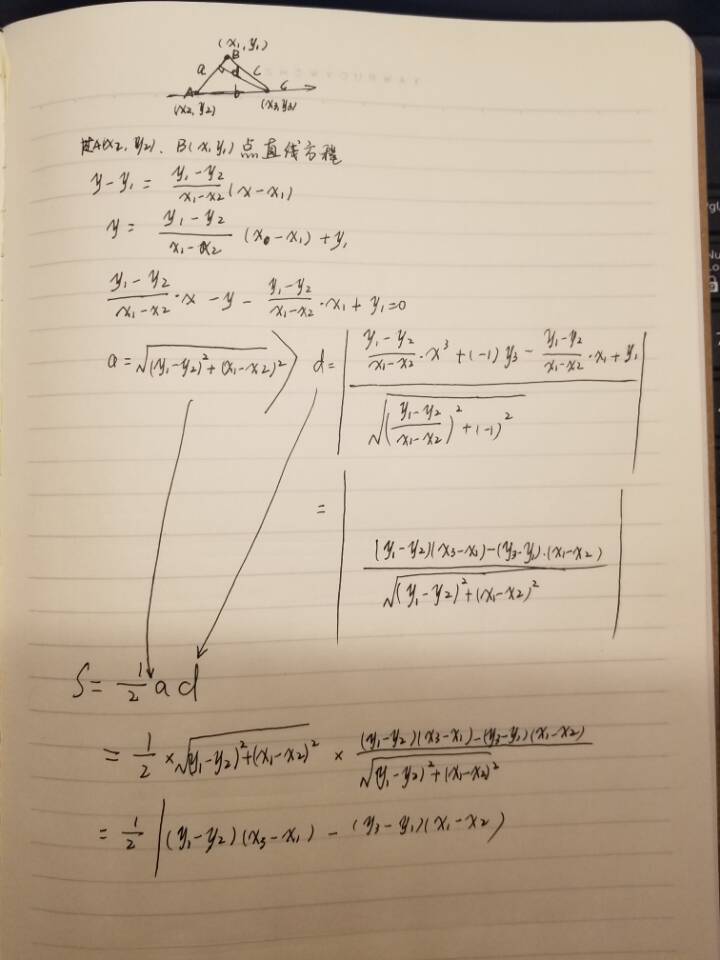 (x₁, y₁)
B
a d c
A b C
(x2, y2) (x3, y3)
A(x2, y2)、B(x₁y₁)点直线方程
y-y₁ = \frac{y₁-y2}{x₁-x2}(x-x₁)
y = \frac{y₁-y2}{x₁-x2}(x-x₁)+y₁
\frac{y₁-y2}{x₁-x2}·x - y - \frac{y₁-y2}{x₁-x2}·x₁ + y₁=0
a = \sqrt{(y₁-y2)²+(x₁-x2)²} d = |\frac{\frac{y₁-y2}{x₁-x2}·x³+(-1)y3 - \frac{y₁-y2}{x₁-x2}·x₁+y₁}{\sqrt{(\frac{y₁-y2}{x₁-x2})²+(-1)²}}|
= |\frac{(y₁-y2)(x3-x₁)-(y3-y₁)·(x₁-x2)}{\sqrt{(y₁-y2)²+(x₁-x2)²}}|
S = \frac{1}{2} a d
= \frac{1}{2} × \sqrt{(y₁-y2)²+(x₁-x2)²} × \frac{(y₁-y2)(x3-x₁)-(y3-y₁)(x₁-x2)}{\sqrt{(y₁-y2)²+(x₁-x2)²}}
= \frac{1}{2} |(y₁-y2)(x3-x₁) - (y3-y₁)(x₁-x2)